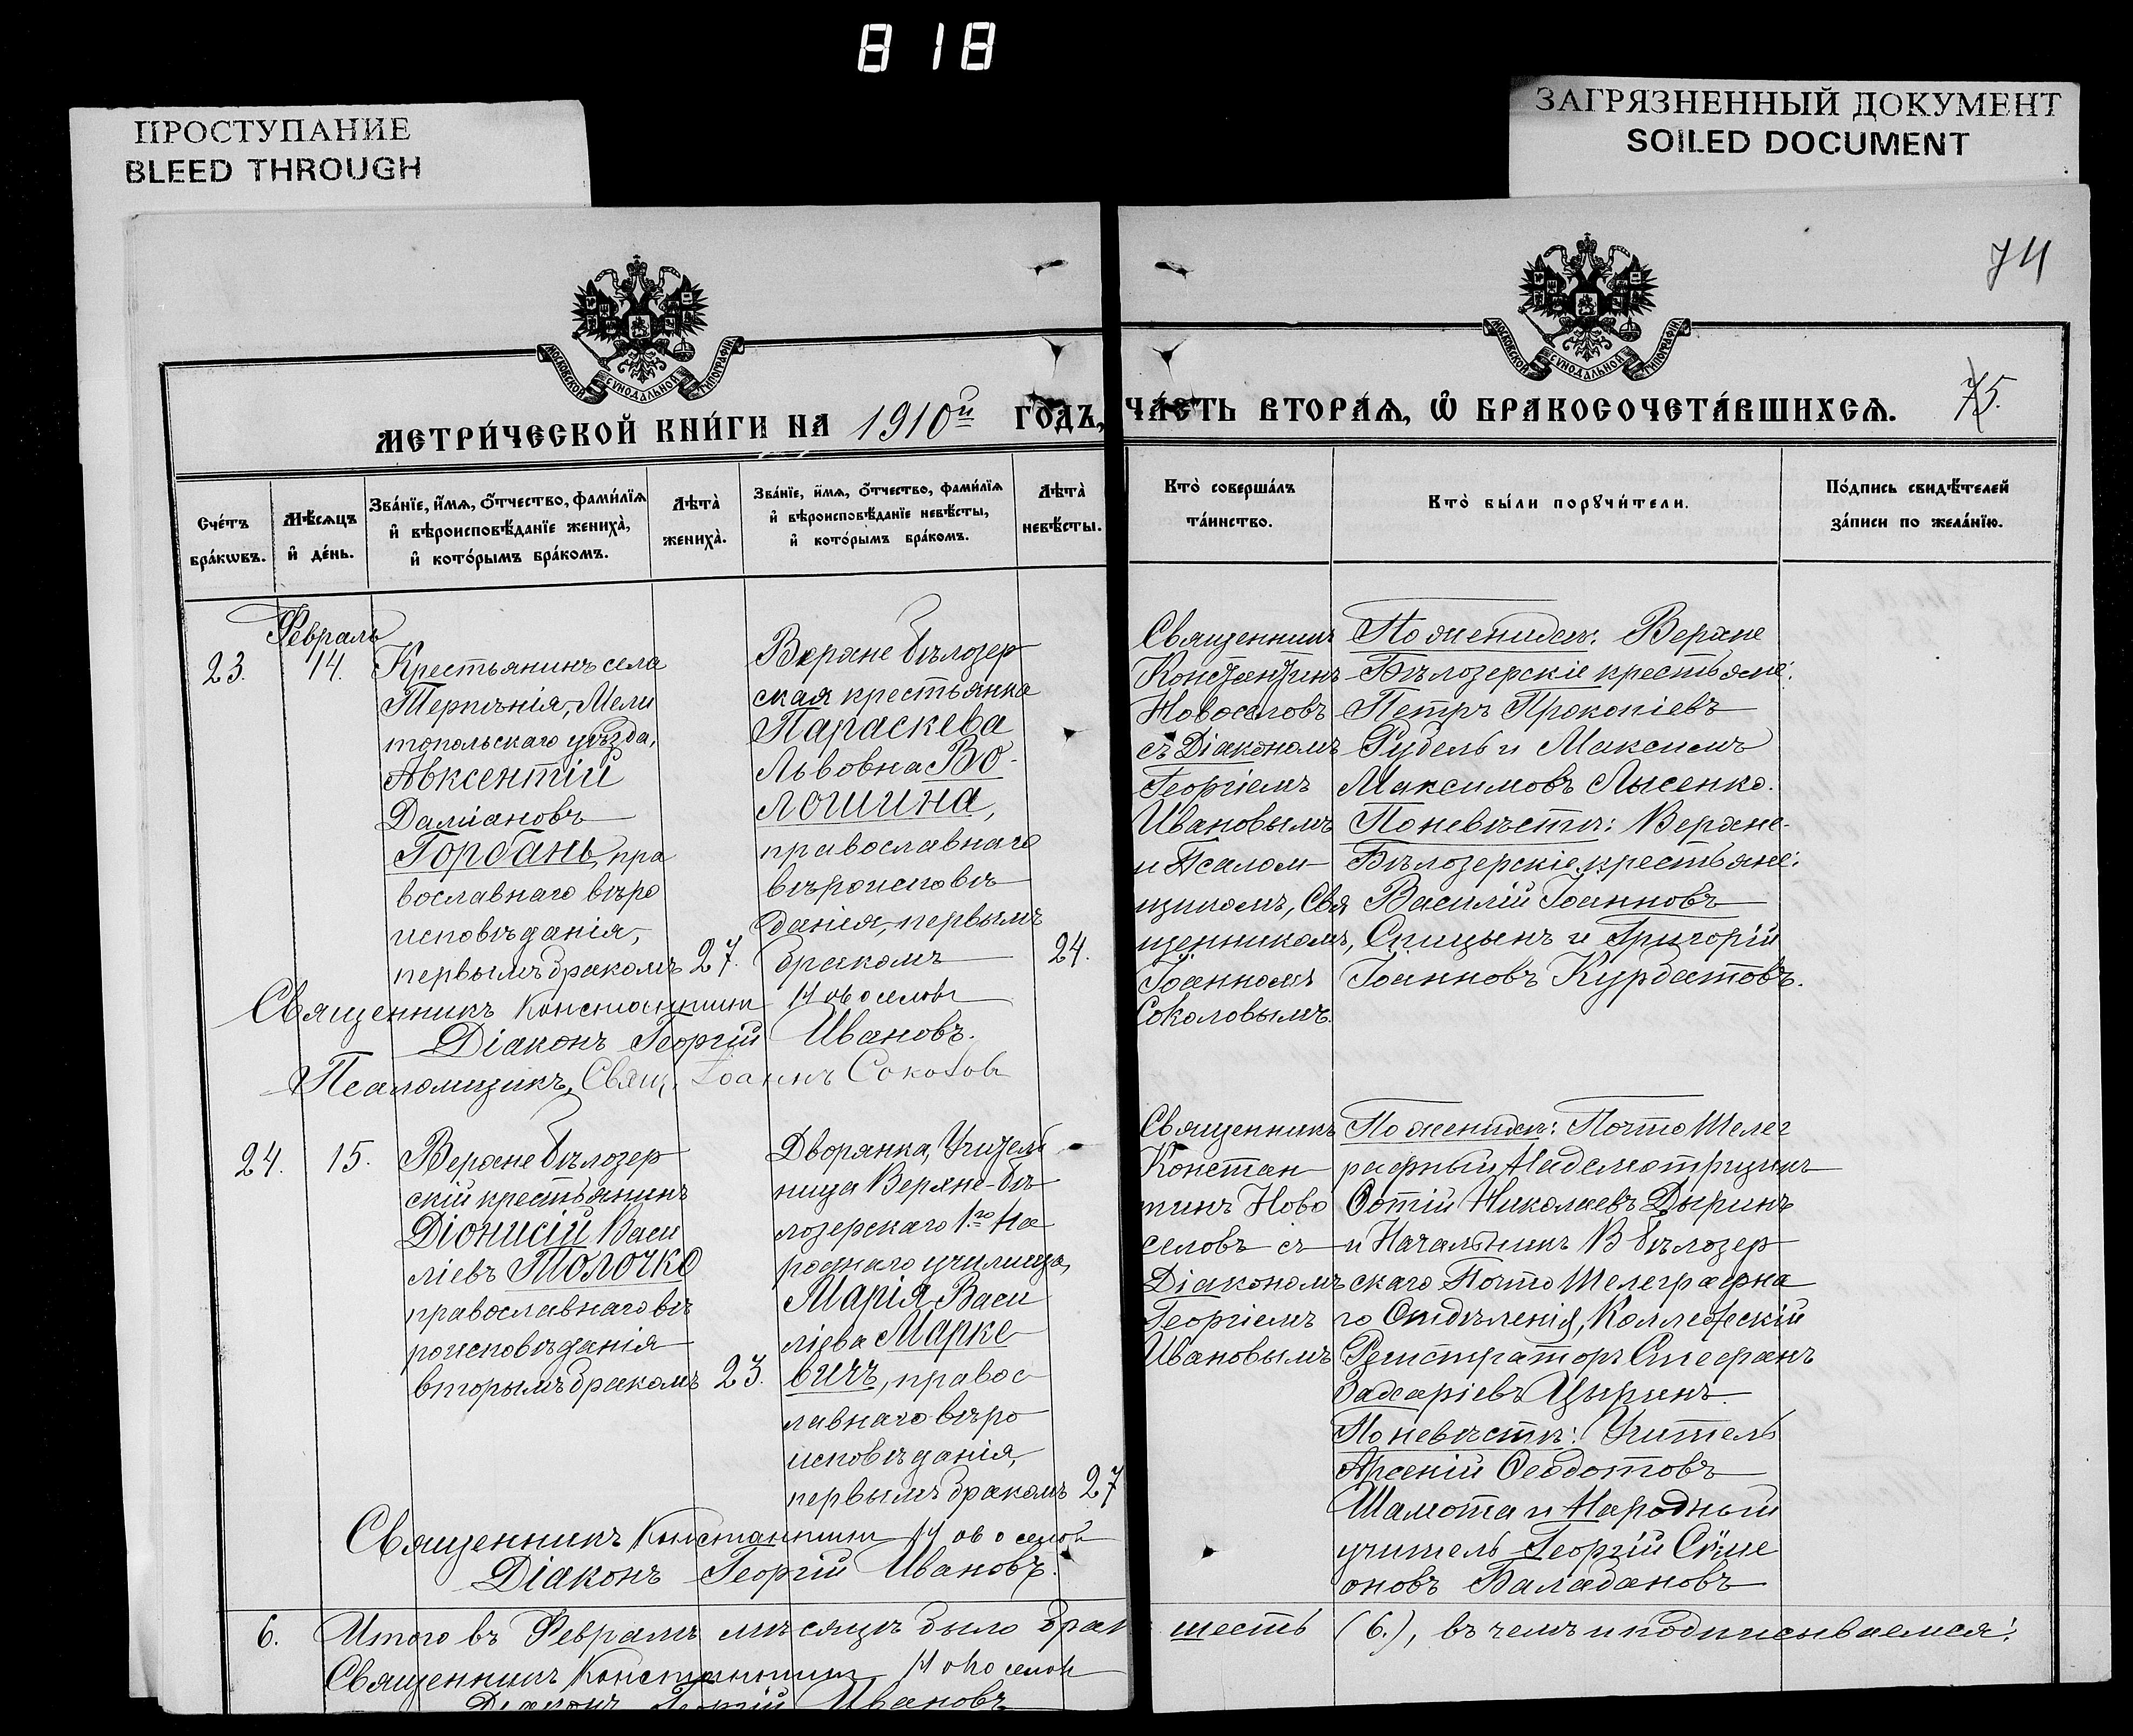 818
ПРОСТУПАНИЕ
BLEED THROUGH
ЗАГРЯЗНЕННЫЙ ДОКУМЕНТ
SOILED DOCUMENT
74
МОСКОВСКОЙ СѴНОДАЛЬНОЙ ТИПОГРАФІИ
МОСКОВСКОЙ СѴНОДАЛЬНОЙ ТИПОГРАФІИ
МЕТРИ́ЧЕСКОЙ КНИ́ГИ НА 1910й ГОДЪ,
ЧА́СТЬ ВТОРА́Ѧ, Ѡ҆ БРАКОСОЧЕТА́ВШИХСѦ.
75.
Сче́тъ
бра́кѡвъ.
Мѣ́сѧцъ
и҆ де́нь.
Зва́нїе, и҆́мѧ, ѻ҆́тчество, фами́лїѧ
и҆ вѣроисповѣ́данїе жениха̀,
и҆ кото́рымъ бра́комъ.
Лѣта̀
жениха̀.
Зва́нїе, и҆́мѧ, ѻ҆́тчество, фами́лїѧ
и҆ вѣроисповѣ́данїе невѣ́сты,
и҆ кото́рымъ бра́комъ.
Лѣта̀
невѣ́сты.
Кто̀ соверша́лъ
та́инство.
Кто̀ бы́ли порꙋчи́тели.
По́дпись свидѣ́телей
за́писи по жела́нїю.
Февраль
23.
14.
Крестьянинъ села
Терпѣнія, Мели
топольскаго уѣзда,
Авксентій
Даміановъ
Горбань, пра
вославнаго вѣро
исповѣданія,
первымъ бракомъ
27.
Верхне бѣлозер
ская крестьянка
Параскева
Львовна Во-
лошина,
православнаго
вѣроисповѣ
данія, первымъ
бракомъ
24.
Священникъ
Константинъ
Новоселовъ
съ Діакономъ
Георгіемъ
Ивановымъ
и Псалом
щикомъ, Свя
щенникомъ,
Іоанномъ
Соколовымъ.
По женихѣ: Верхне
Бѣлозерскіе крестьяне:
Петръ Прокопіевъ
Рубель и Максимъ
Максимовъ Лысенко.
По невѣстѣ: Верхне-
Бѣлозерскіе крестьяне:
Василій Іоанновъ
Спицынъ и Григорій
Іоанновъ Курбатовъ.
Священникъ Константинъ Новоселовъ
Діаконъ Георгій Ивановъ.
Псаломщикъ, Свящ. Іоаннъ Соколовъ
24.
15.
Верхне бѣлозер
скій крестьянинъ
Діонисій Васи
ліевъ Толочко
православнаго вѣ
роисповѣданія
вторымъ бракомъ
23.
Дворянка, Учитель
ница Верхне-бѣ
лозерскаго 1.го На
роднаго училища,
Марія Васи
ліева Марке
вичъ, правос
лавнаго вѣро
исповѣданія,
первымъ бракомъ
27
Священникъ
Констан
тинъ Ново
селовъ съ
Діакономъ
Георгіемъ
Ивановымъ
По женихѣ: Почто Телег
рафный Надсмотрщикъ
Ѳотій Николаевъ Дыринъ
и Начальникъ В бѣлозер
скаго Почто Телеграфна
го Отдѣленія, Коллежскій
Регистраторъ Стефанъ
Захаріевъ Цыринъ.
По невѣстѣ: Учитель
Арсеній Ѳеодотовъ
Шамота и Народный
учитель Георгій Сѵме
оновъ Баладановъ
Священникъ Константинъ Новоселовъ
Діаконъ Георгій Ивановъ.
6. Итого въ Февралѣ мѣсяцѣ было брак шесть (6.), въ чемъ и подписываемся:
Священникъ Константинъ Новоселовъ
Діаконъ Георгій Ивановъ